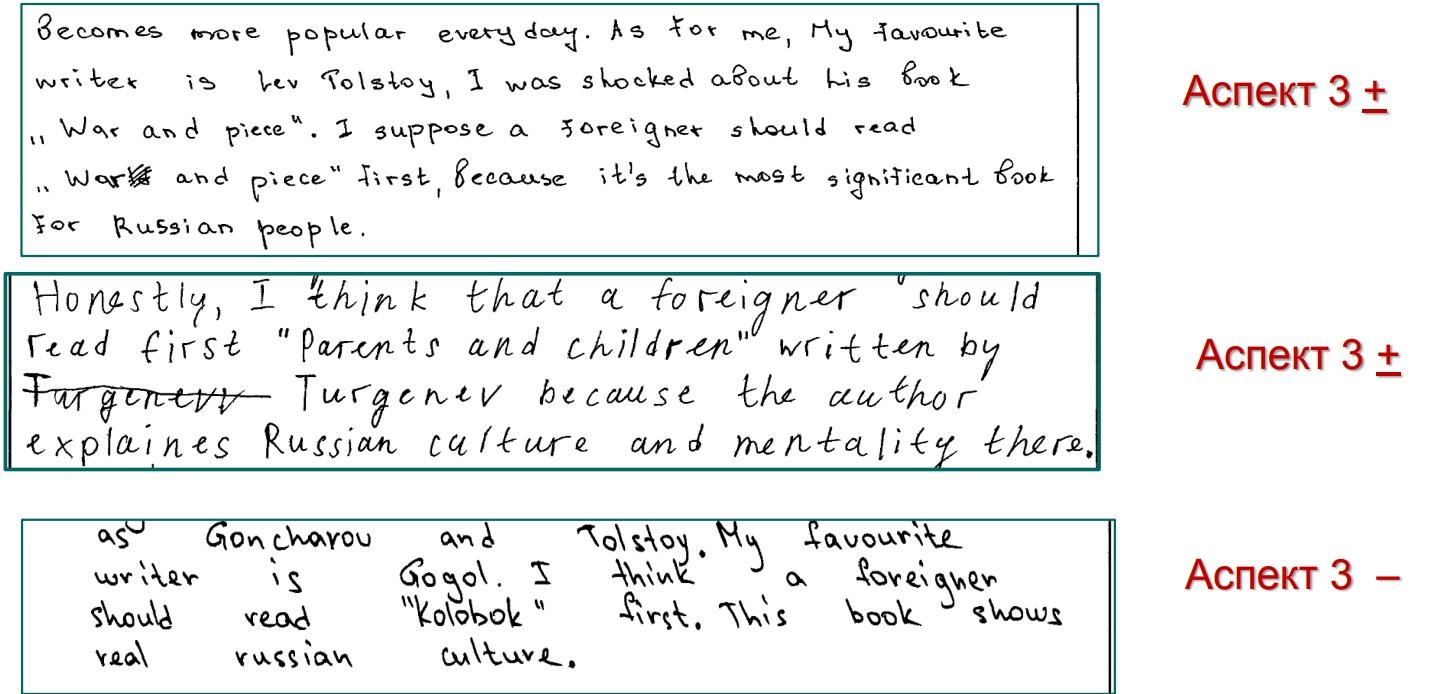 Becomes more popular everyday. As for me, My favourite
writer is Lev Tolstoy, I was shocked about his book
„War and piece". I suppose a foreigner should read
„War and piece" first, because it's the most significant book
for Russian people.
Аспект 3 +
Honestly, I think that a foreigner should
read first "Parents and children" written by
Turgenev because the author
explaines Russian culture and mentality there.
Аспект 3 +
as Goncharov and Tolstoy. My favourite
writer is Gogol. I think a foreigner
should read "Kolobok" first. This book shows
real russian culture.
Аспект 3 –